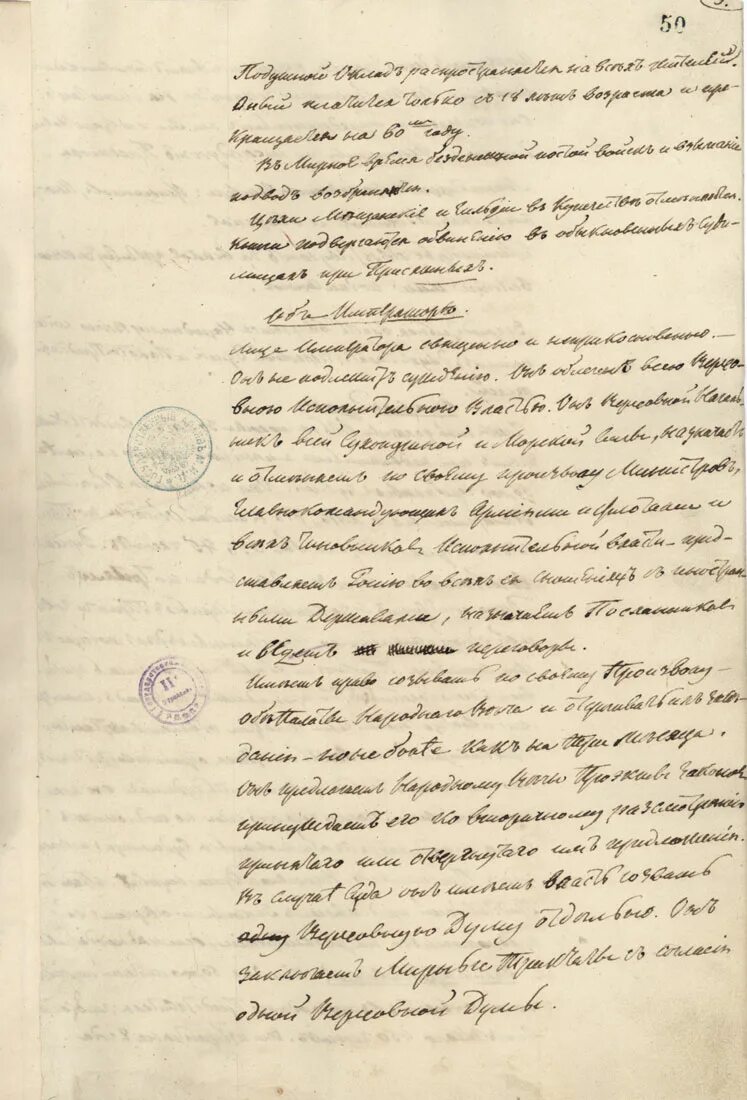 50
Подушной Окладъ распространяется на всѣхъ жителей.
Оный платится только съ 18 лѣтъ возраста и пре-
кращается на 60мъ году.
Въ Мирное время безденежной постой войскъ и взиманіе
подводъ возбраняется.
Цехи Мѣщанскіе и Гильдіи въ Купечествѣ отмѣняются.
подвергаются въ обыкновенныхъ Суди-
лищахъ при Присяжныхъ.
Объ Императорѣ.
Лице Императора священно и неприкосновенно. —
Онъ не подлежитъ сужденію. Онъ облеченъ всею Верхо-
вною Исполнительною Властью. Онъ Верховной Началь-
никъ всей Сухопутной и Морской Силы, назначаетъ
и отмѣняетъ по своему произволу Министровъ,
Главнокомандующихъ Арміями и Флотами и
всѣхъ Чиновниковъ Исполнительной власти — пред-
ставляетъ Россію во всѣхъ ея сношеніяхъ съ иностран-
ными Державами, назначаетъ Посланниковъ
и ведетъ переговоры.
Имѣетъ право созывать по своему Произволу
обѣ Палаты Народнаго Вѣча и отсрочивать ихъ Засѣ-
данія — не болѣе какъ на Три Мѣсяца.
Онъ предлагаетъ Народному Вѣчу Проэкты Законовъ
принуждаетъ его ко вторичному разсмотрѣнію
принятаго или отвергнутаго имъ предложенія.
Въ случаѣ Суда онъ имѣетъ власть созвать
одну Верховную Думу отдѣльно. Онъ
заключаетъ Миръ Трактаты съ согласія
одной Верховной Думы.